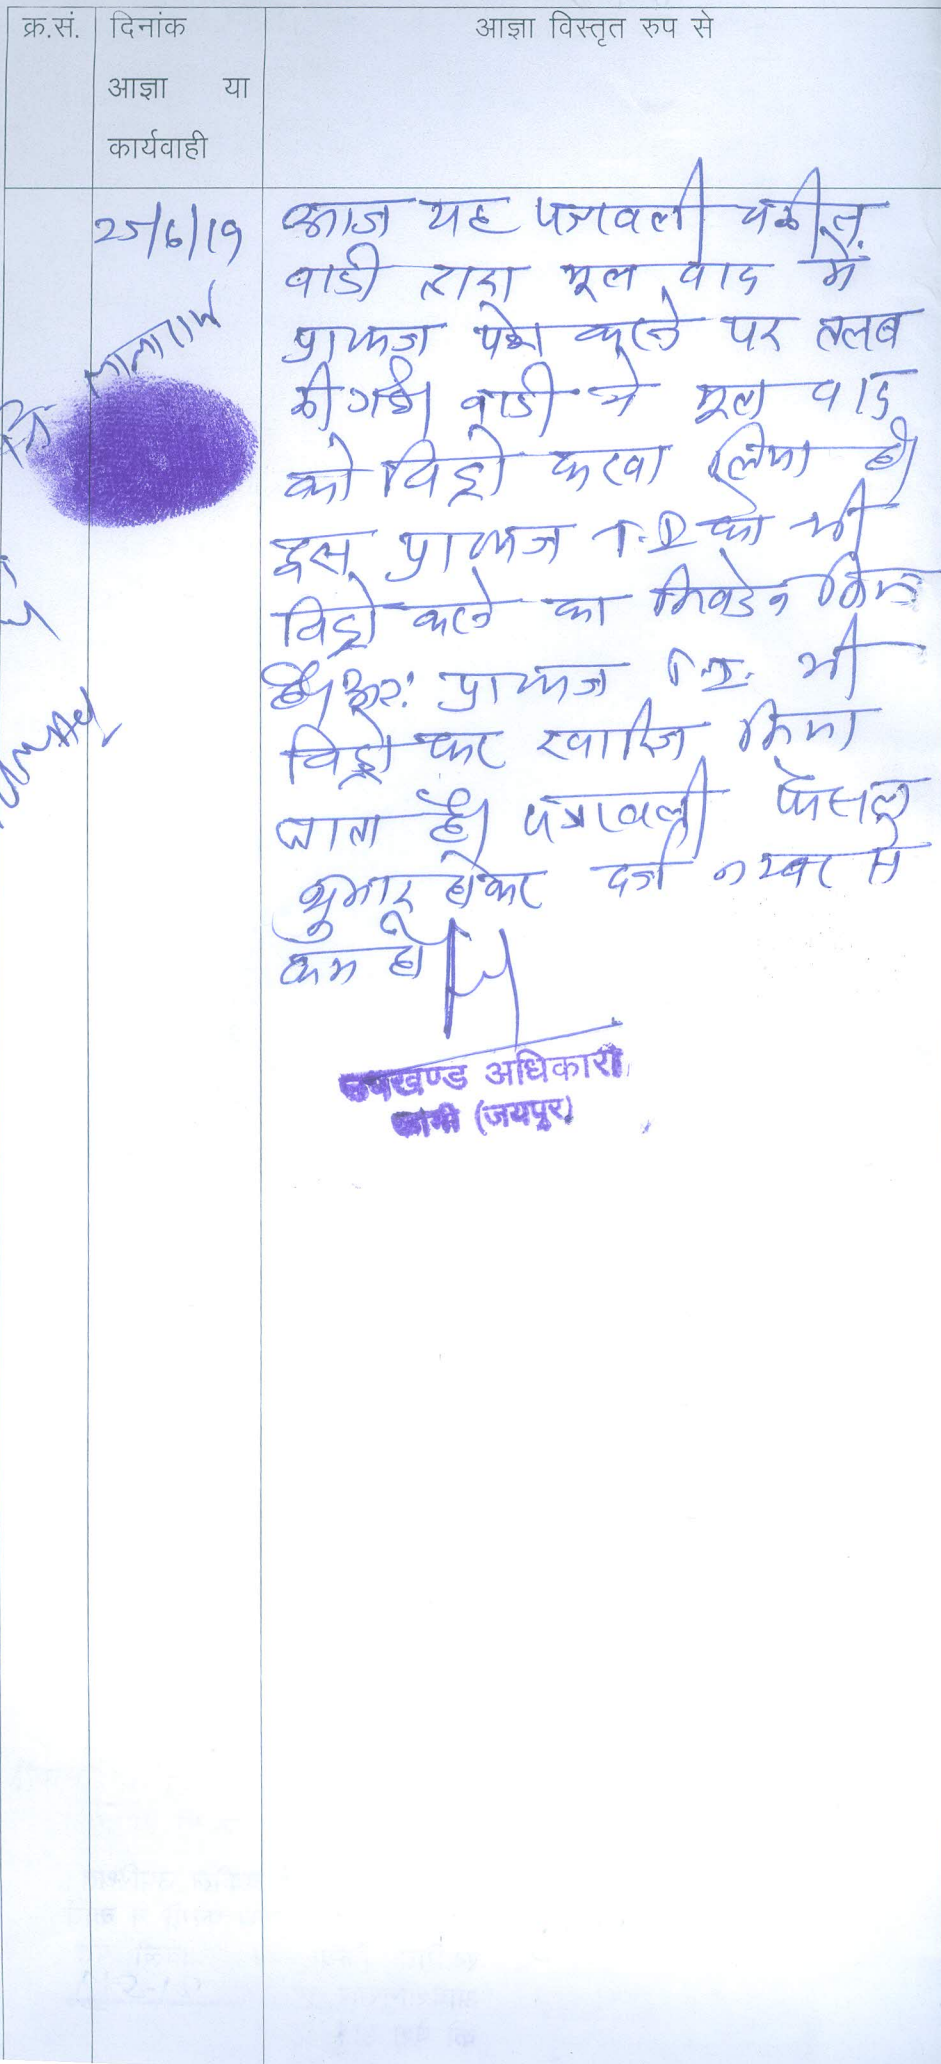 क्र.सं. दिनांक आज्ञा विस्तृत रुप से
आज्ञा या
कार्यवाही
25/6/19 आज यह पत्रावली
वादी द्वारा मूल वाद में
प्रा०पत्र पेश करने पर तलब
की गई। वादी ने मूल वाद
को विड्रो करवा लिया है।
इस प्रा०पत्र T.I. को भी
विड्रो करने का निवेदन किया
है। अतः प्रा०पत्र T.I. भी
विड्रो कर खारिज किया
जाता है। पत्रावली फैसल
शुमार होकर दर्ज नम्बर से
कम हो।
लालाराम
उपखण्ड अधिकारी
फागी (जयपुर)